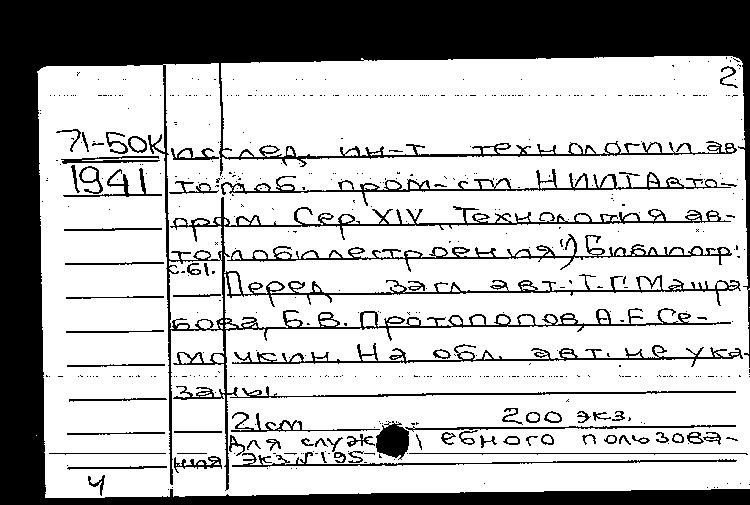 2
71-50К исслед. ин-т технологии ав-
1941 томоб. пром-сти НИИТАвто-
пром. Сер. XIV „Технология ав-
томобилестроения") Библиогр:
с. 61.
Перед загл. авт.: Т.Г. Машра-
бова, Б.В. Протопопов, А.Е. Се-
мочкин. На обл. авт. не ука-
заны.
21cm 200 экз.
Для служебного пользова-
ния Экз. №195
4